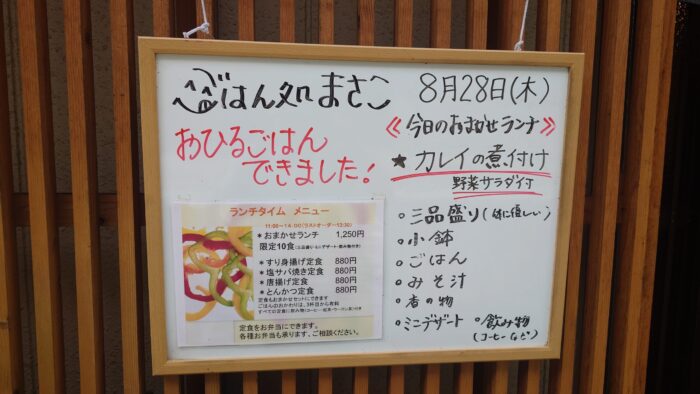 ごはん処 まさこ
おひるごはん
できました!
ランチタイム メニュー
11:00～14:00(ラストオーダー13:30)
＊おまかせランチ 1,250円
限定10食
＊すり身揚げ定食 880円
＊塩サバ焼き定食 880円
＊唐揚げ定食 880円
＊とんかつ定食 880円
定食もおまかせセットにできます
ごはんのおかわりは、3杯目から有料
すべての定食に飲み物(コーヒー・紅茶・ウーロン茶)付き
定食をお弁当にできます。
各種お弁当も承ります、ご相談ください。
8月28日(木)
《今日のおまかせランチ》
★カレイの煮付け
野菜サラダ付
○三品盛り(体に優しい)
○小鉢
○ごはん
○みそ汁
○香の物
○ミニデザート ○飲み物
(コーヒーなど)